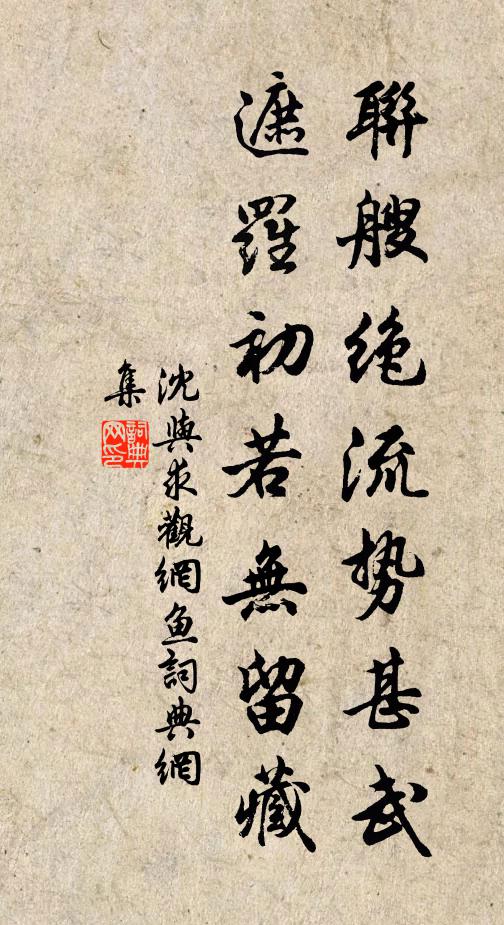 聯艘絶流勢甚武
遮羅初若無留藏
沈與求觀網魚詞典網
集
詞典
网印